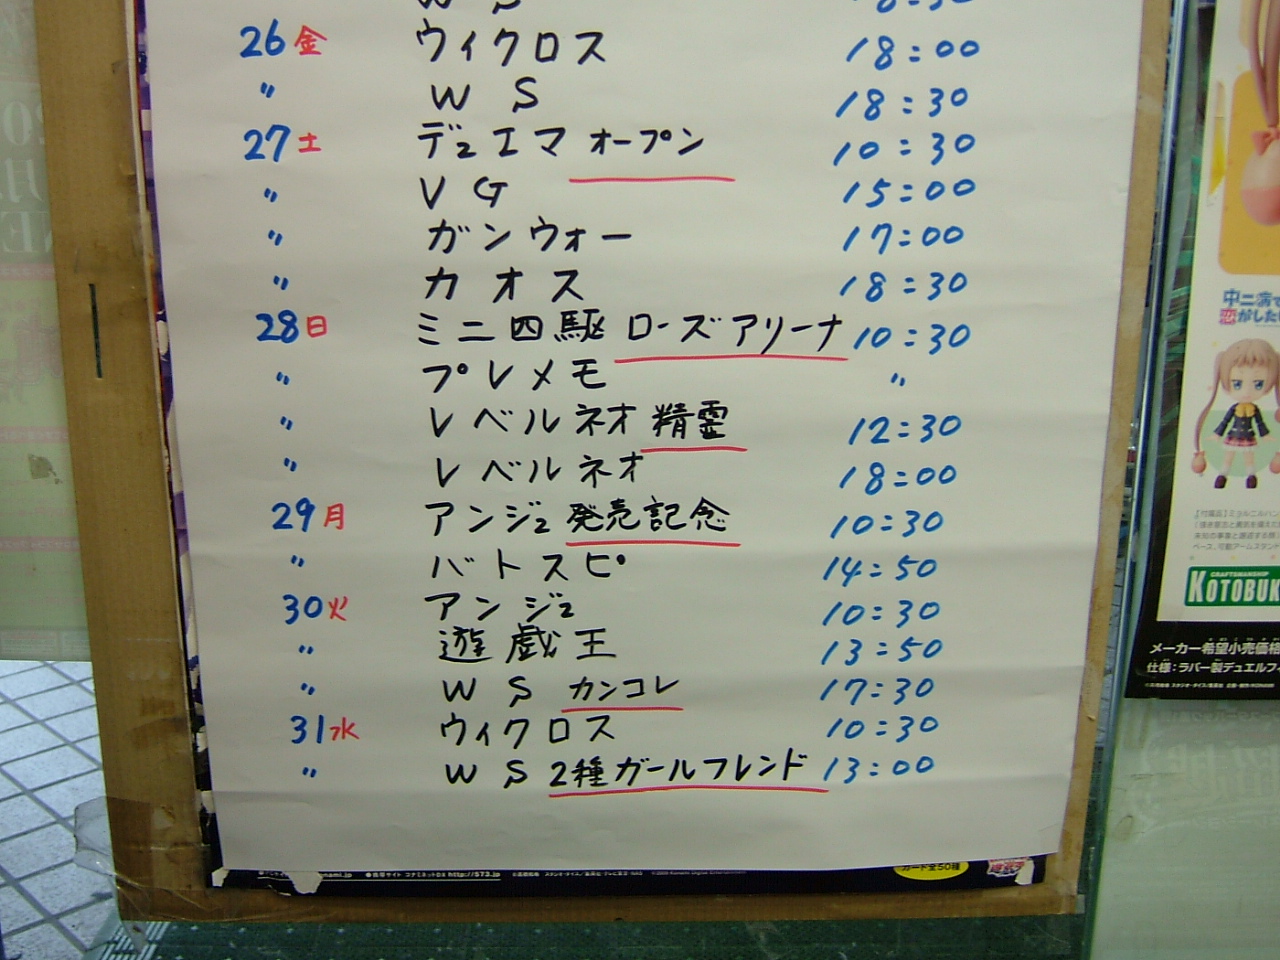 W S 18:30
26 金 ウィクロス 18:00
〃 W S 18:30
27 土 デュエマ オープン 10:30
〃 V G 15:00
〃 ガンウォー 17:00
〃 カオス 18:30
28 日 ミニ四駆 ローズアリーナ 10:30
〃 プレメモ 〃
〃 レベルネオ 精霊 12:30
〃 レベルネオ 18:00
29 月 アンジュ 発売記念 10:30
〃 バトスピ 14:50
30 火 アンジュ 10:30
〃 遊戯王 13:50
〃 W S カンコレ 17:30
31 水 ウィクロス 10:30
〃 W S 2種ガールフレンド 13:00
http://573.jp
カード全50種
中二病で
恋がしたい
CRAFTSMANSHIP
KOTOBUK
メーカー希望小売価格
仕様:ラバー製デュエルフィ